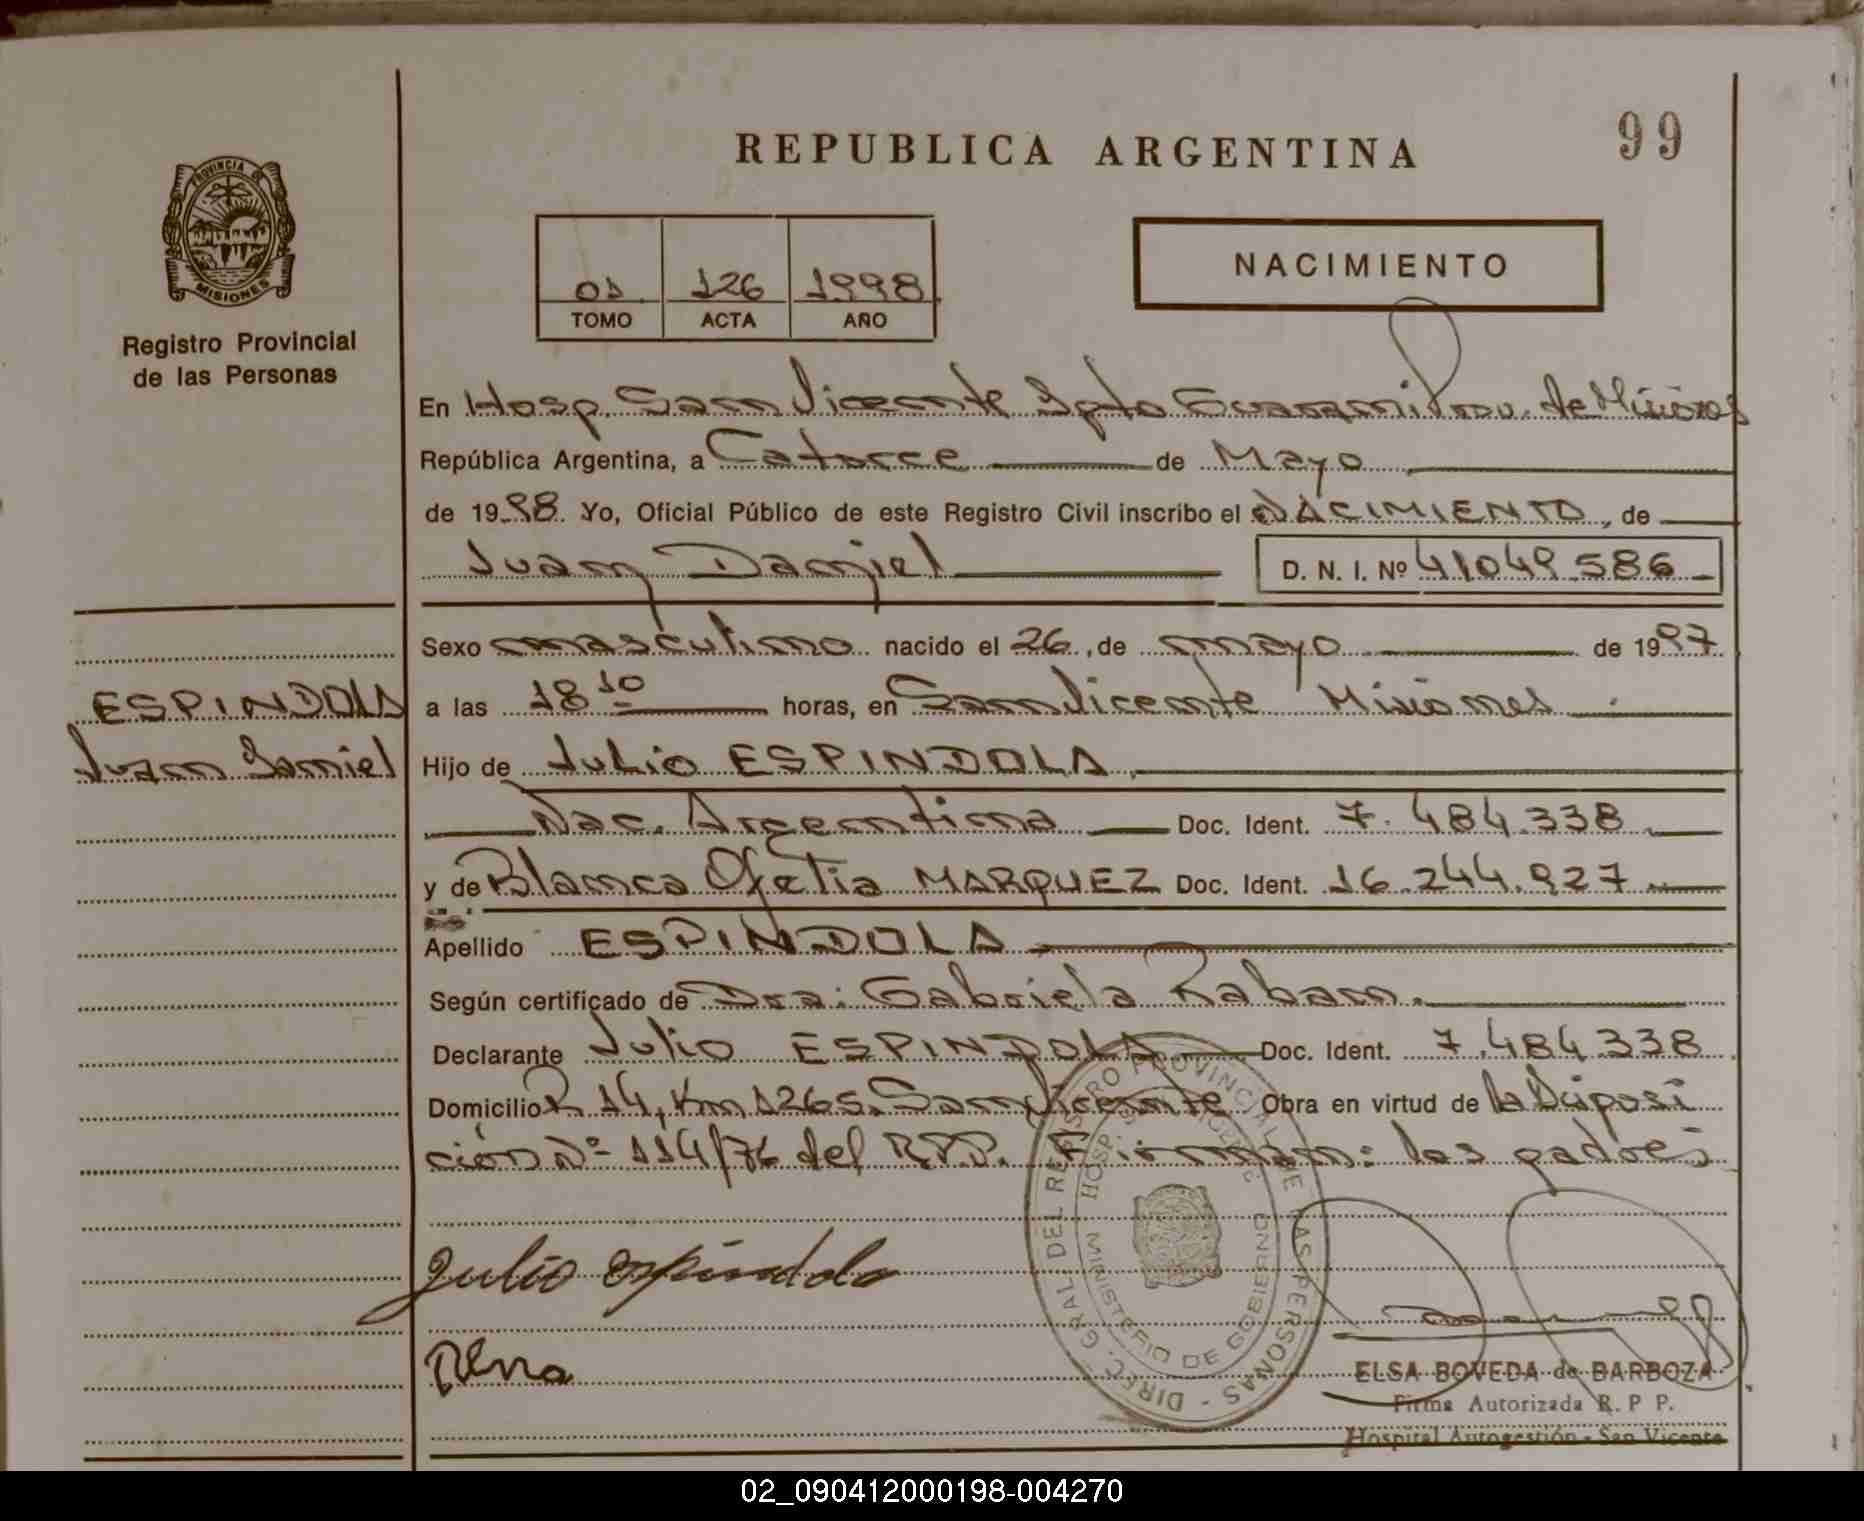 99
REPUBLICA ARGENTINA
PROVINCIA DE
MISIONES
Registro Provincial
de las Personas
01 126 1998
TOMO ACTA AÑO
NACIMIENTO
En Hosp. San Vicente Dpto Guarani Prov. de Misiones
República Argentina, a Catorce de Mayo
de 1998. Yo, Oficial Público de este Registro Civil inscribo el NACIMIENTO, de
Juan Daniel D. N. I. Nº 41049.586
Sexo masculino nacido el 26, de mayo de 1997
ESPINDOLA
Juan Daniel
a las 18 10 horas, en San Vicente Misiones
Hijo de Julio ESPINDOLA
Nac. Argentina Doc. Ident. 7.484.338
y de Blanca Ofelia MARQUEZ Doc. Ident. 16.244.927
Apellido ESPINDOLA
Según certificado de Dra: Gabriela Raban.
Declarante Julio ESPINDOLA Doc. Ident. 7.484.338
Domicilio R 14, Km 1265. San Vicente Obra en virtud de la Disposi
ción Nº 114/76 del R.P.P. Firman: los padres
Julio espindola
DIREC. GRAL DEL REGISTRO PROVINCIAL DE LAS PERSONAS -
HOSP. S. VICENTE
MINISTERIO DE GOBIERNO
ELSA BOVEDA de BARBOZA
Firma Autorizada R. P P.
Hospital Autogestión - San Vicente
02_090412000198-004270